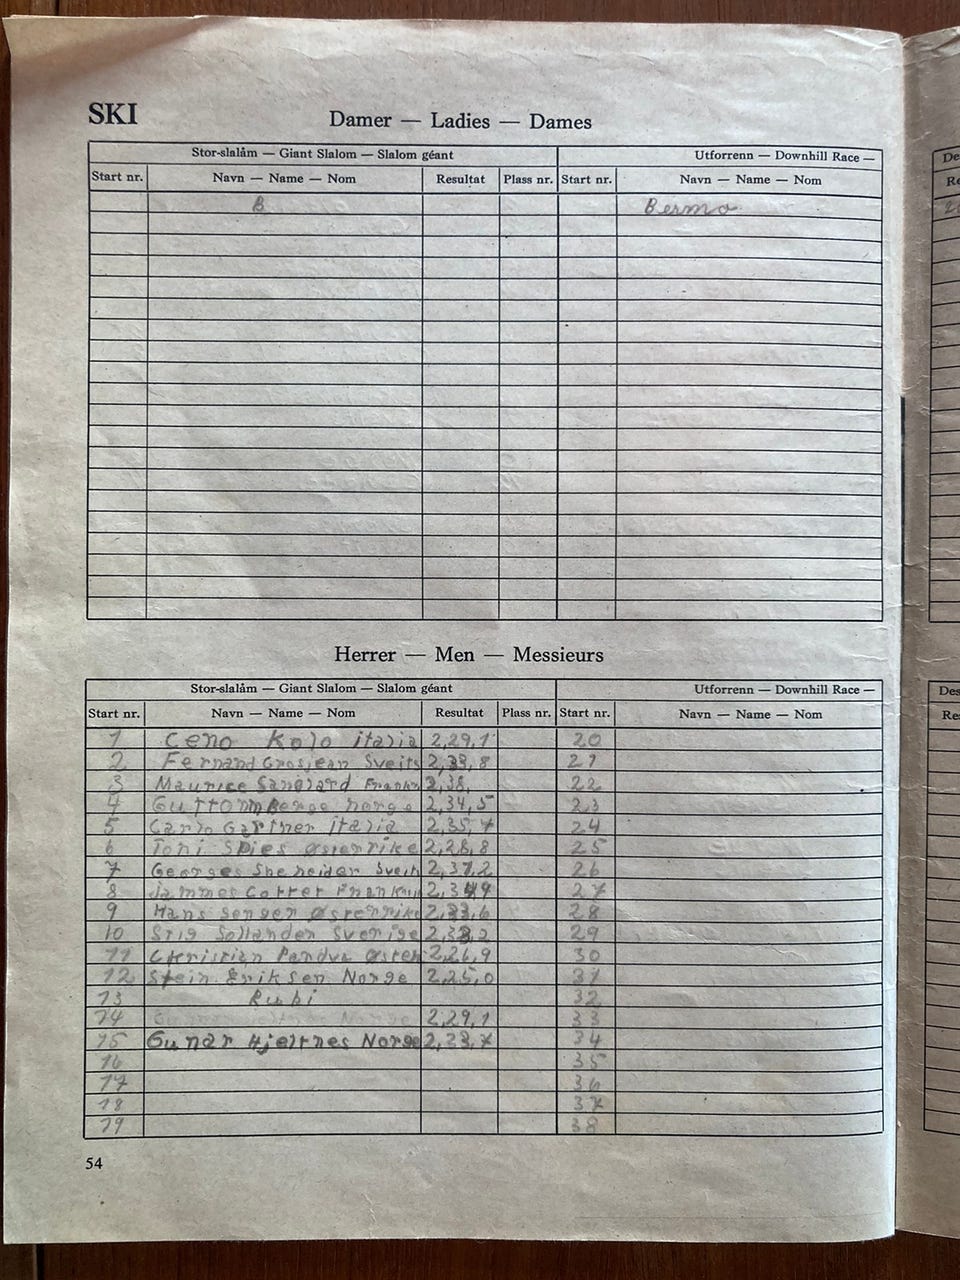 SKI
Damer — Ladies — Dames
Stor-slalåm — Giant Slalom — Slalom géant Utforrenn — Downhill Race —
Start nr. Navn — Name — Nom Resultat Plass nr. Start nr. Navn — Name — Nom
B
Herrer — Men — Messieurs
Stor-slalåm — Giant Slalom — Slalom géant Utforrenn — Downhill Race —
Start nr. Navn — Name — Nom Resultat Plass nr. Start nr. Navn — Name — Nom
1 Ceno Kolo italia 2,29,1 20
2 Fernand Grosjean Sveits 21
3 Maurice Sanglard 22
4 Guttorm Berge norge 2,34,5 23
5 Carlo Gartner italia 2,35,7 24
6 Toni Spies østerrike 2,28,8 25
7 Georges Shneider 2,37,2 26
8 Jammes 27
9 Hans Senger Østerrike 28
10 Stig Sollander Sverige 29
11 Christian 2,26,9 30
12 Stein Eriksen Norge 2,25,0 31
13 Rubi 32
14 Norge 2,29,1 33
15 Gunar Hjeltnes Norge 34
16 35
17 36
18 37
19 38
54